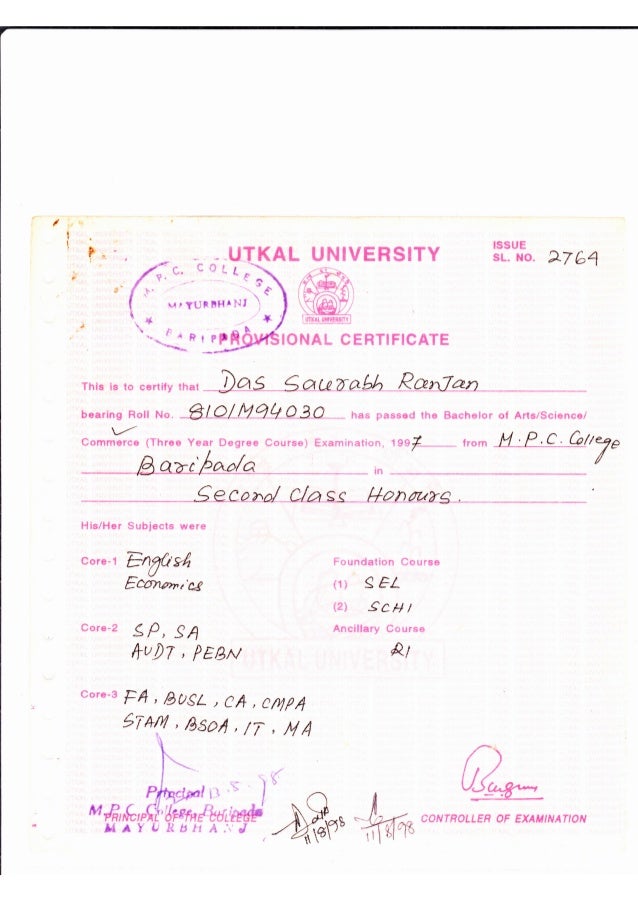 UTKAL UNIVERSITY
ISSUE
SL. NO. 2764
M.P.C. COLLEGE
MAYURBHANJ
★ BARIPADA ★
UTKAL UNIVERSITY
PROVISIONAL CERTIFICATE
This is to certify that Das Saurabh Ranjan
bearing Roll No. 8101M94030 has passed the Bachelor of Arts/Science/
Commerce (Three Year Degree Course) Examination, 1997 from M.P.C. College
Baripada in
Second Class Honours.
His/Her Subjects were
Core-1 English
Economics
Foundation Course
(1) SEL
(2) SCHI
Core-2 SP, SA
AUDT, PEBN
Ancillary Course
RI
UTKAL UNIVERSITY
Core-3 FA, BUSL, CA, CMPA
STAM, BSOA, IT, MA
Principal 13.8.98
M.P.C. College, Baripada
PRINCIPAL OF THE COLLEGE
MAYURBHANJ
11/8/98
11/8/98
CONTROLLER OF EXAMINATION